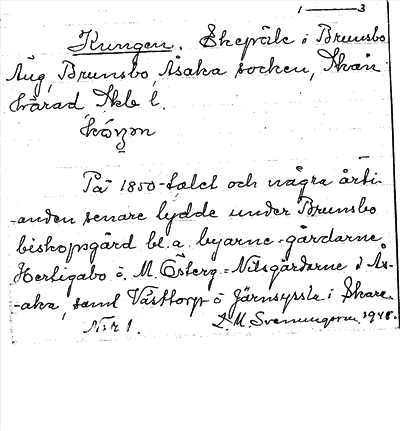 1 — 3
Kungen. Ekepräk i Brunsbo
Äng, Brunsbo, Åsaka socken, Skån
härad Skb l.

På 1850-talet och några årti-
-onden senare lydde under Brunsbo
biskopsgård bl. a. byarne-gårdarne
Hertigabo ö. M. Österg-Näsgårdarne i Ås-
-aka, samt Västtorp o Järnsyssla i Skara
N:r 1. L. M. Svenungsson, 1948.